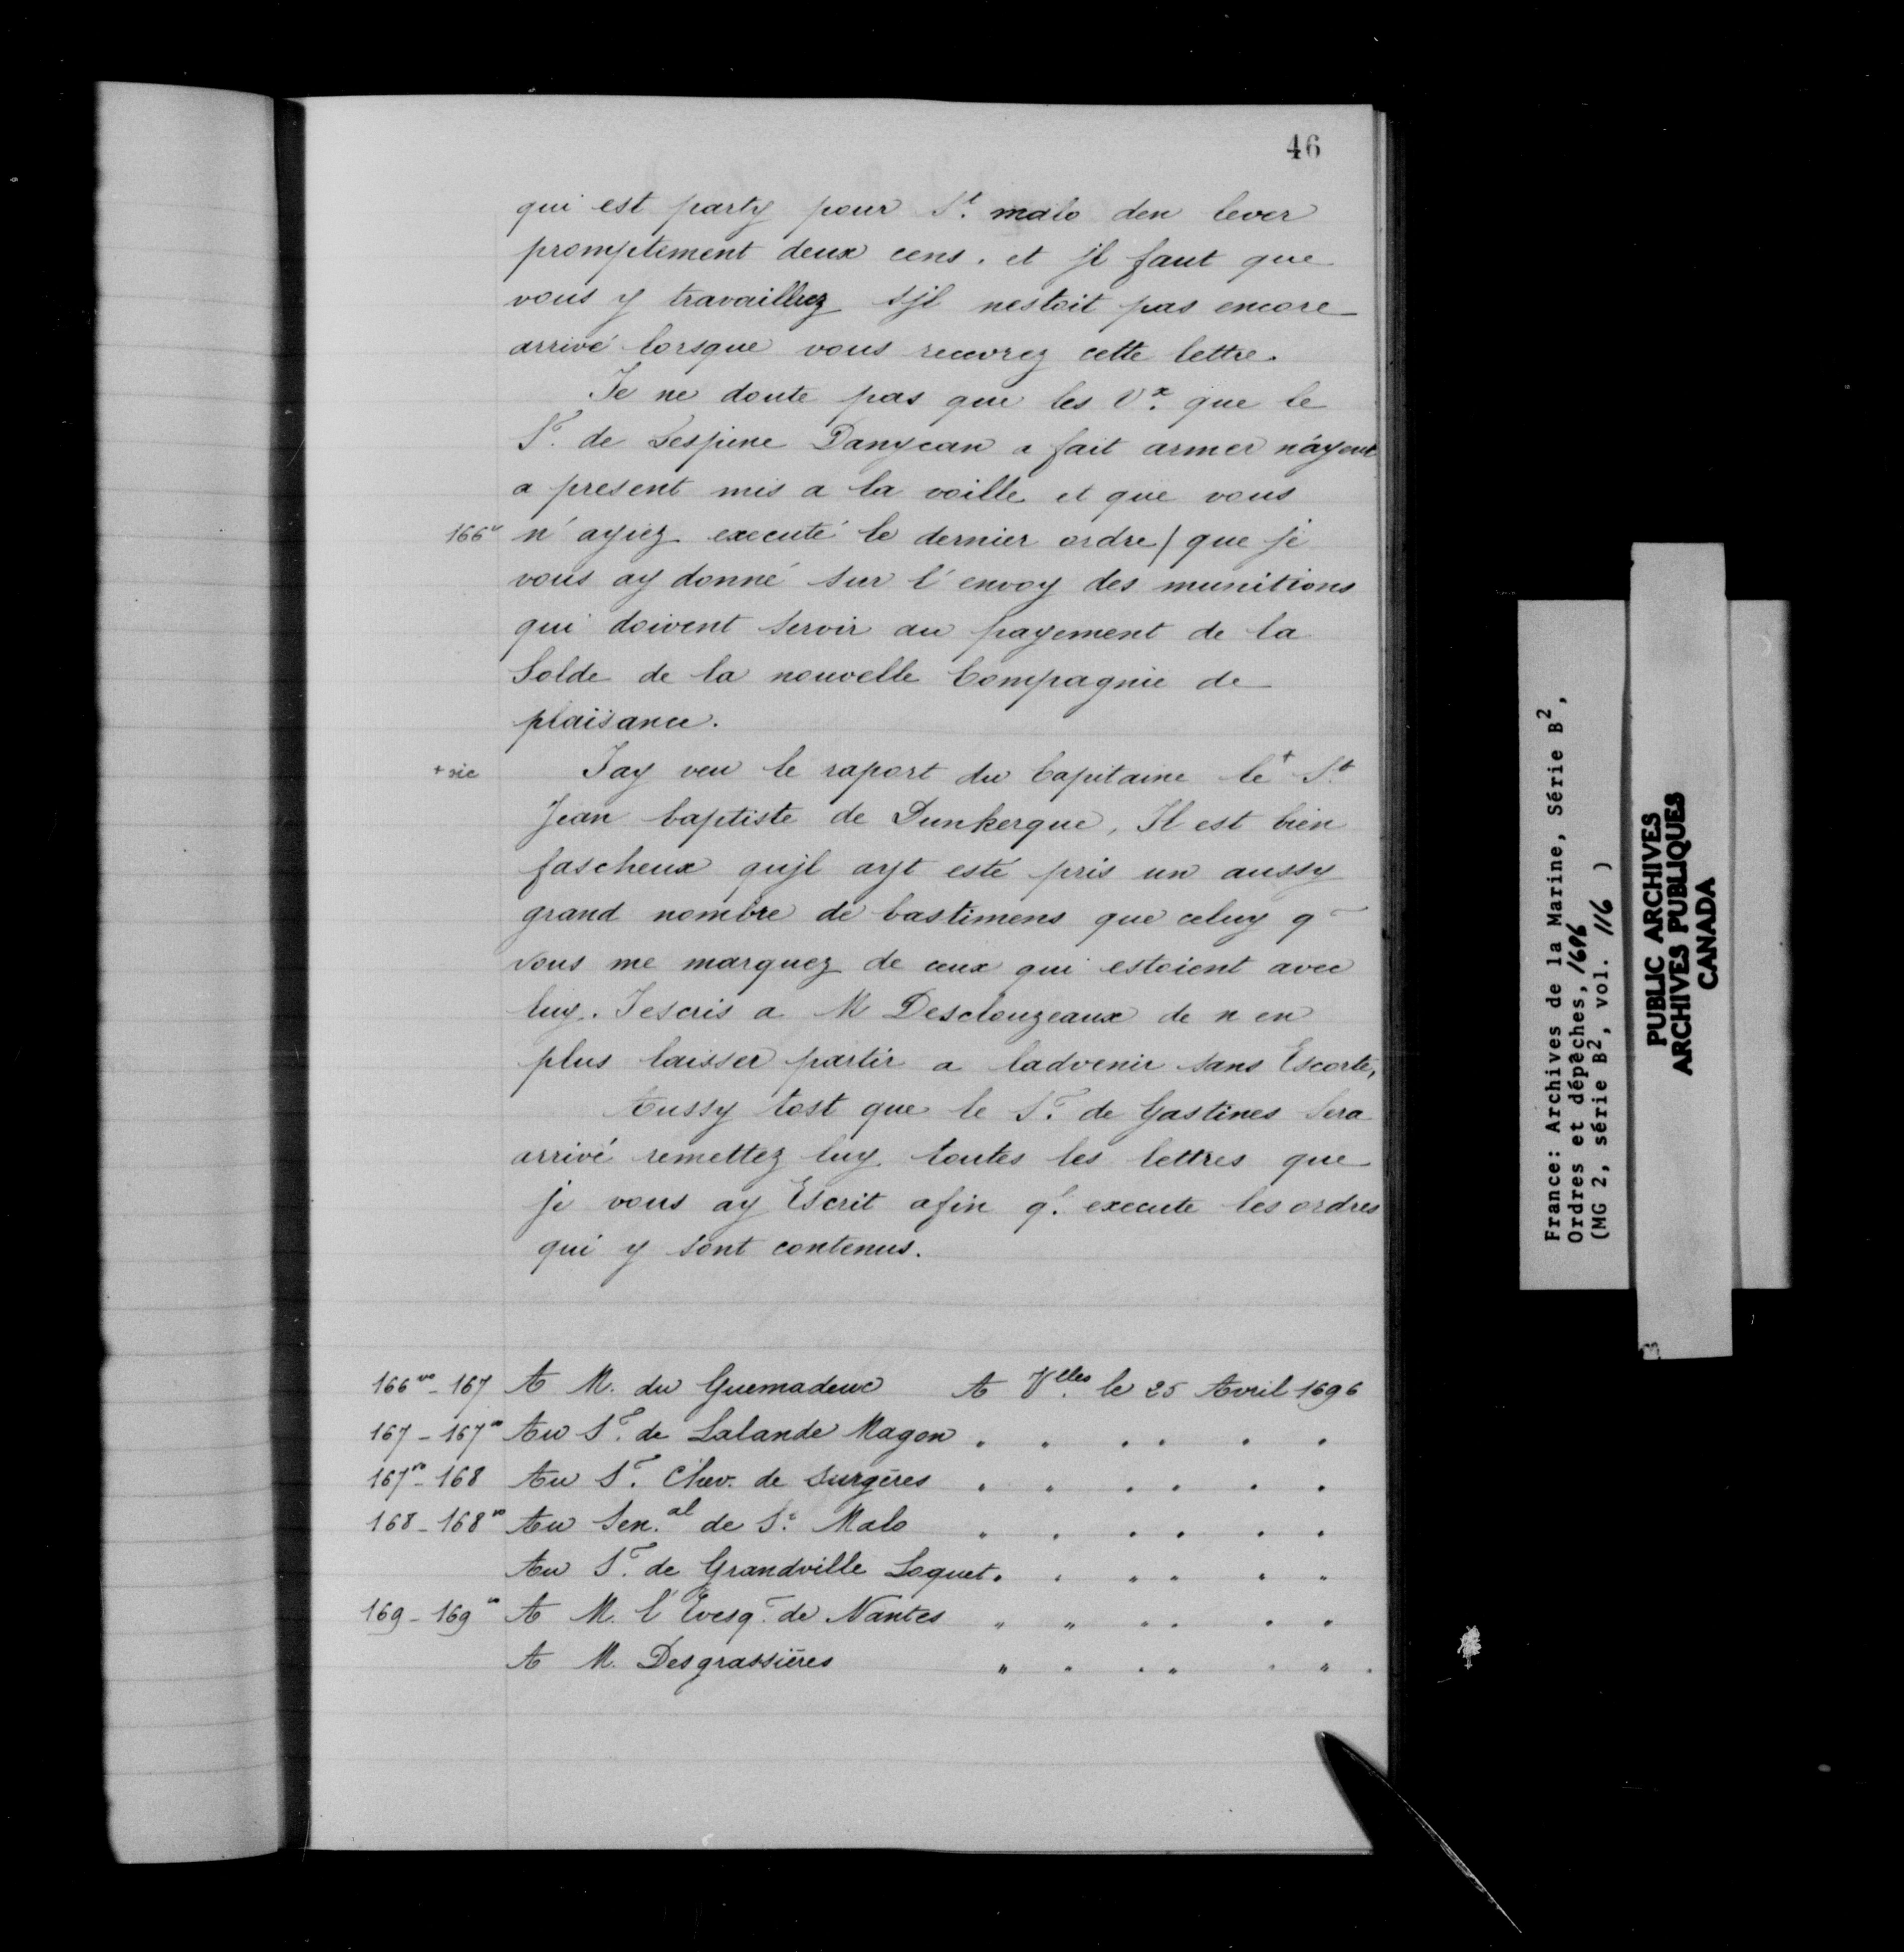 46
qui est party pour S.t malo den lever
promptement deux cens. et jl faut que
vous y travailliez sjl nestoit pas encore
arrivé lorsque vous recevrez cette lettre.
Je ne doute pas que les V.x que le
S.r de Lespine Danycan a fait armer n'ayent
a present mis a la voille et que vous
166v n'ayiez executé le dernier ordre / que je
vous ay donné sur l'envoy des munitions
qui doivent servir au payement de la
Solde de la nouvelle Compagnie de
plaisance.
+ sic Jay veu le raport du Capitaine le+ S.t
Jean baptiste de Dunkerque, Il est bien
fascheux qujl ayt esté pris un aussy
grand nombre de bastimens que celuy q
vous me marquez de ceux qui estoient avec
luy. Jescris a M Desclouzeaux de n en
plus laisser partir a ladvenir sans Escorte,
Aussy tost que le S.r de Gastines Sera
arrivé remettez luy toutes les lettres que
je vous ay Escrit afin q.l execute les ordres
qui y sont contenus.
166vo - 167 A M. du Guemadeuc A V.lles le 25 Avril 1696
167 - 167vo Au S.r de Lalande Magon " " " " " "
167vo - 168 Au S.r Chev. de Surgères " " " " " "
168 - 168vo Au Sen.al de S.t Malo " " " " " "
Au S.r de Grandville Loquet " " " " " "
169 - 169vo A M. l'Evesq. de Nantes " " " " " "
A M. Desgrassières " " " " " "
France: Archives de la Marine, Série B2,
Ordres et dépêches, 1696
(MG 2, série B2, vol. 116 )
PUBLIC ARCHIVES
ARCHIVES PUBLIQUES
CANADA